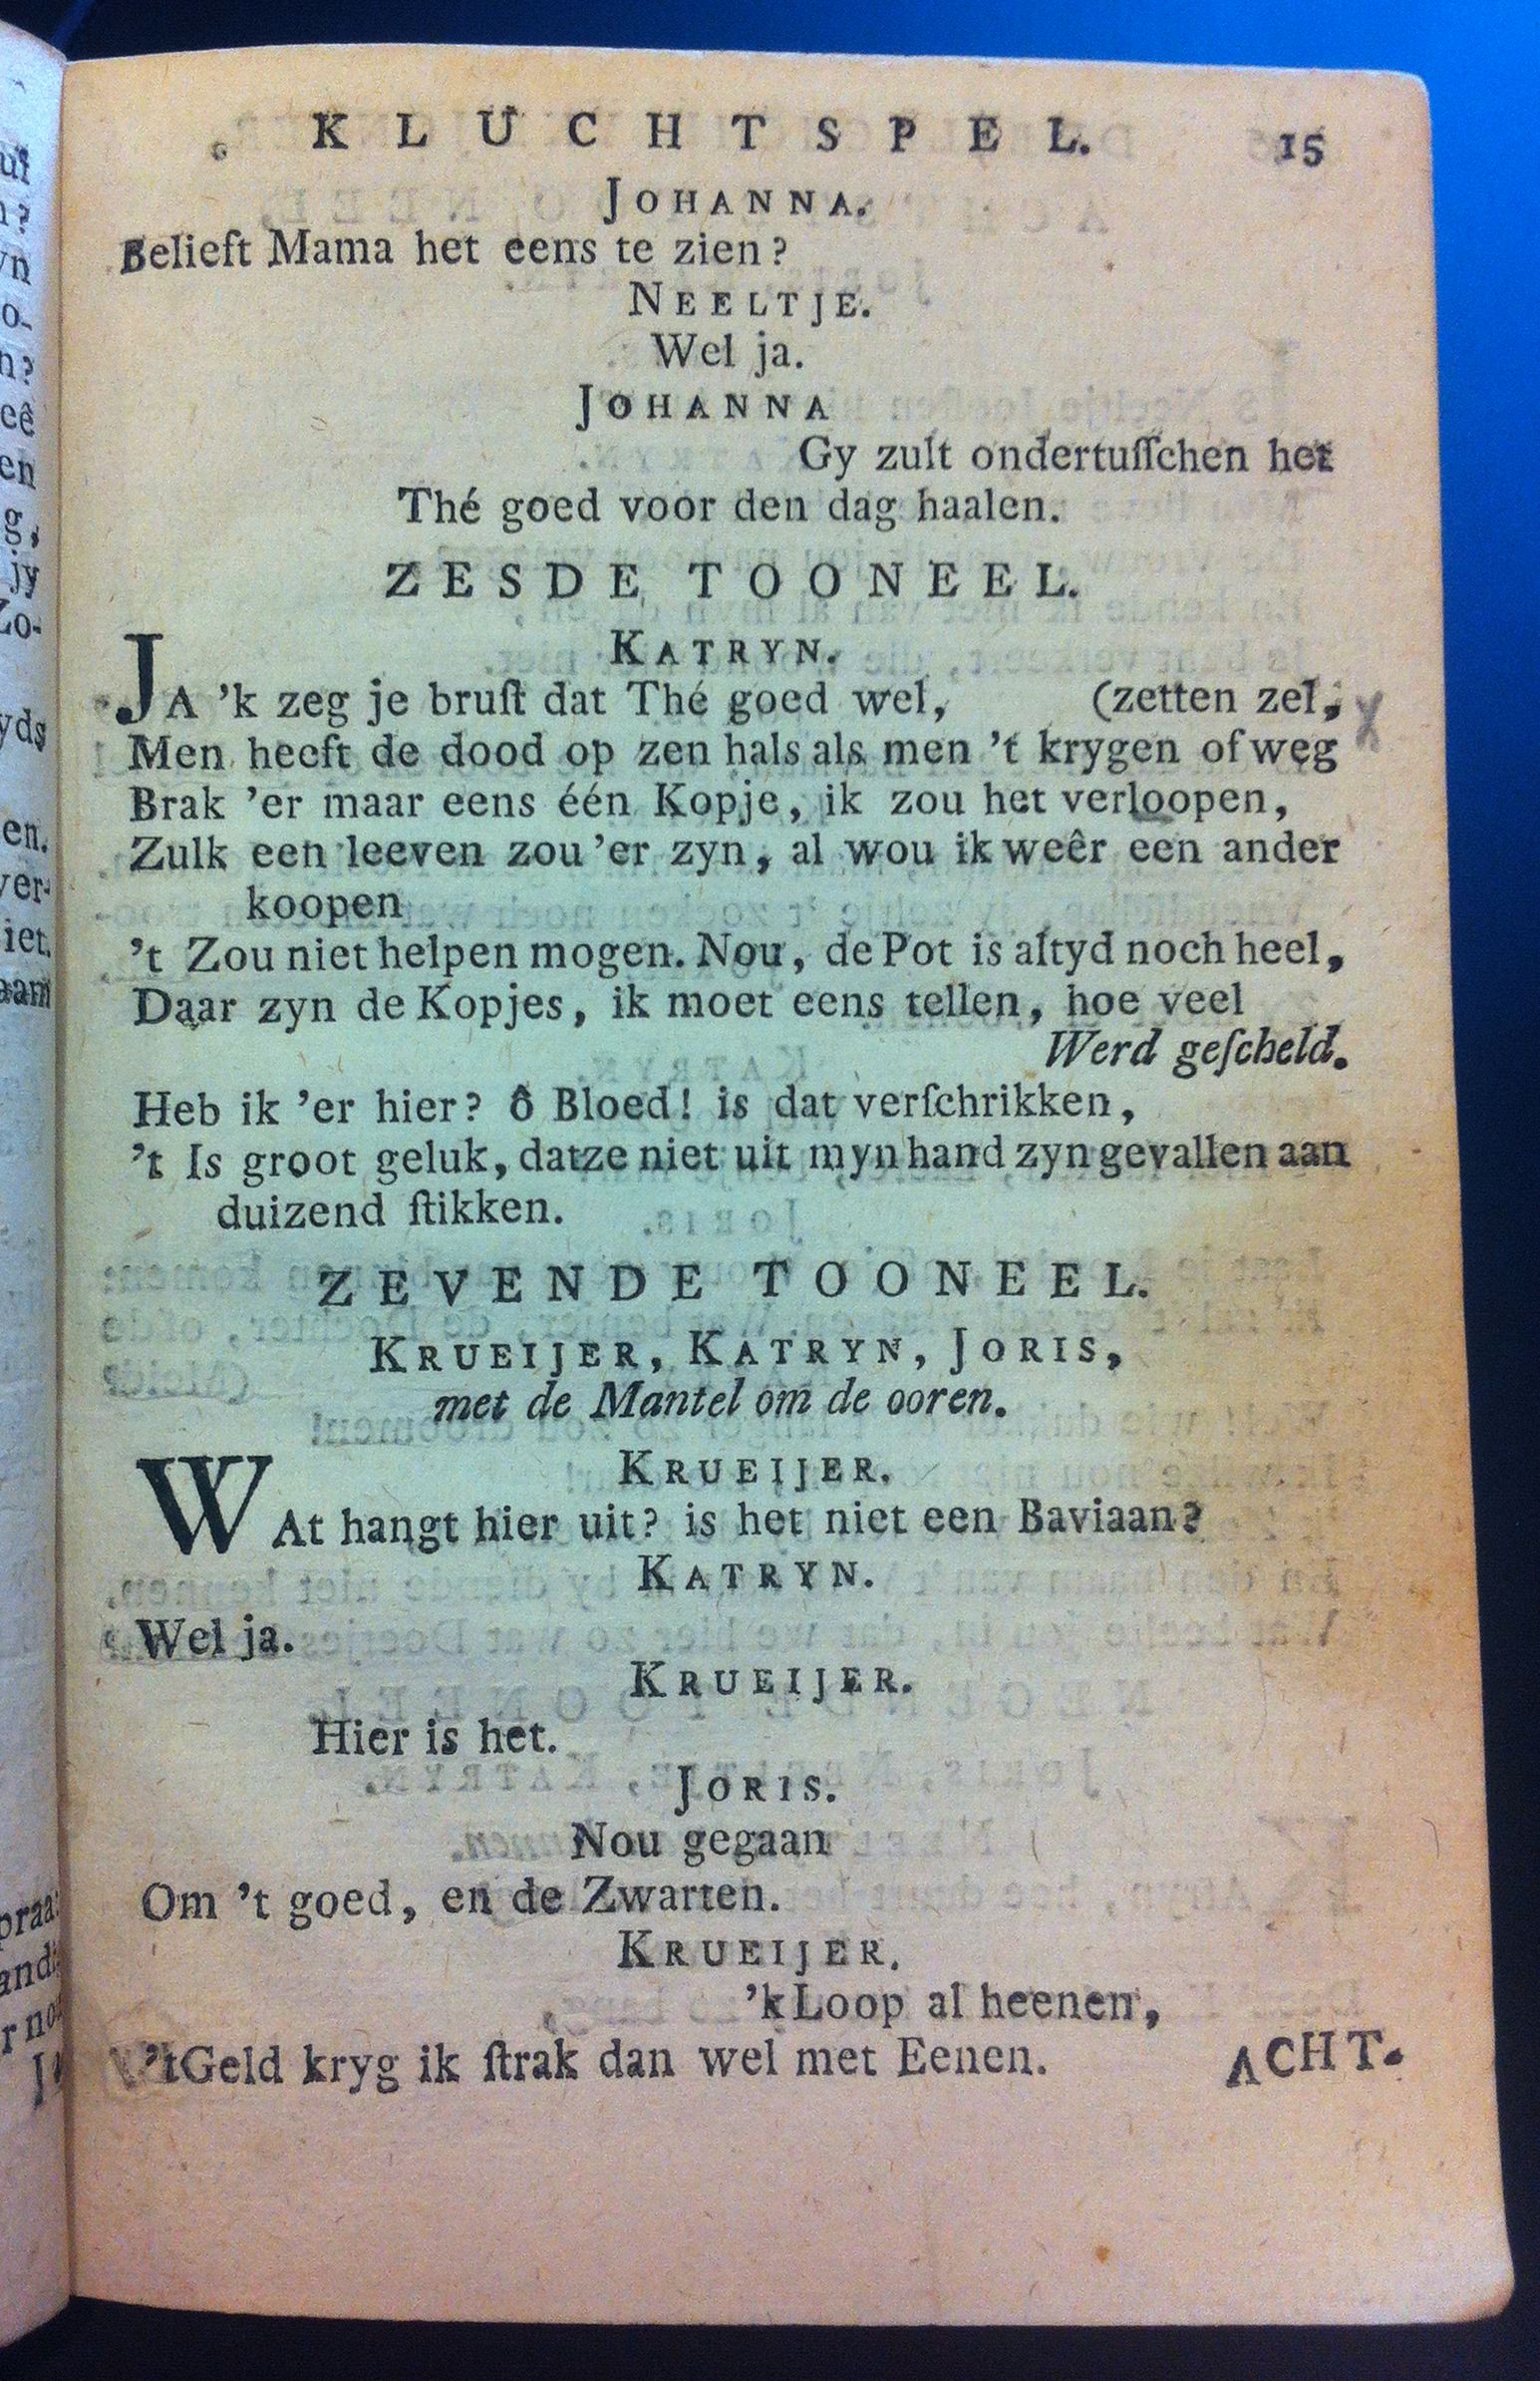 KLUCHTSPEL. 15
JOHANNA.
Belieft Mama het eens te zien?
NEELTJE.
Wel ja.
JOHANNA
Gy zult ondertuſſchen het
Thé goed voor den dag haalen.
ZESDE TOONEEL.
KATRYN.
JA 'k zeg je bruſt dat Thé goed wel, (zetten zel,
Men heeft de dood op zen hals als men 't krygen of weg
Brak 'er maar eens één Kopje, ik zou het verloopen,
Zulk een leeven zou 'er zyn, al wou ik weêr een ander
koopen
't Zou niet helpen mogen. Nou, de Pot is altyd noch heel,
Daar zyn de Kopjes, ik moet eens tellen, hoe veel
Werd geſcheld.
Heb ik 'er hier? ô Bloed! is dat verſchrikken,
't Is groot geluk, datze niet uit myn hand zyn gevallen aan
duizend ſtikken.
ZEVENDE TOONEEL.
KRUEIJER, KATRYN, JORIS,
met de Mantel om de ooren.
KRUEIJER.
WAt hangt hier uit? is het niet een Baviaan?
KATRYN.
Wel ja.
KRUEIJER.
Hier is het.
JORIS.
Nou gegaan
Om 't goed, en de Zwarten.
KRUEIJER.
'k Loop al heenen,
't Geld kryg ik ſtrak dan wel met Eenen. ACHT.